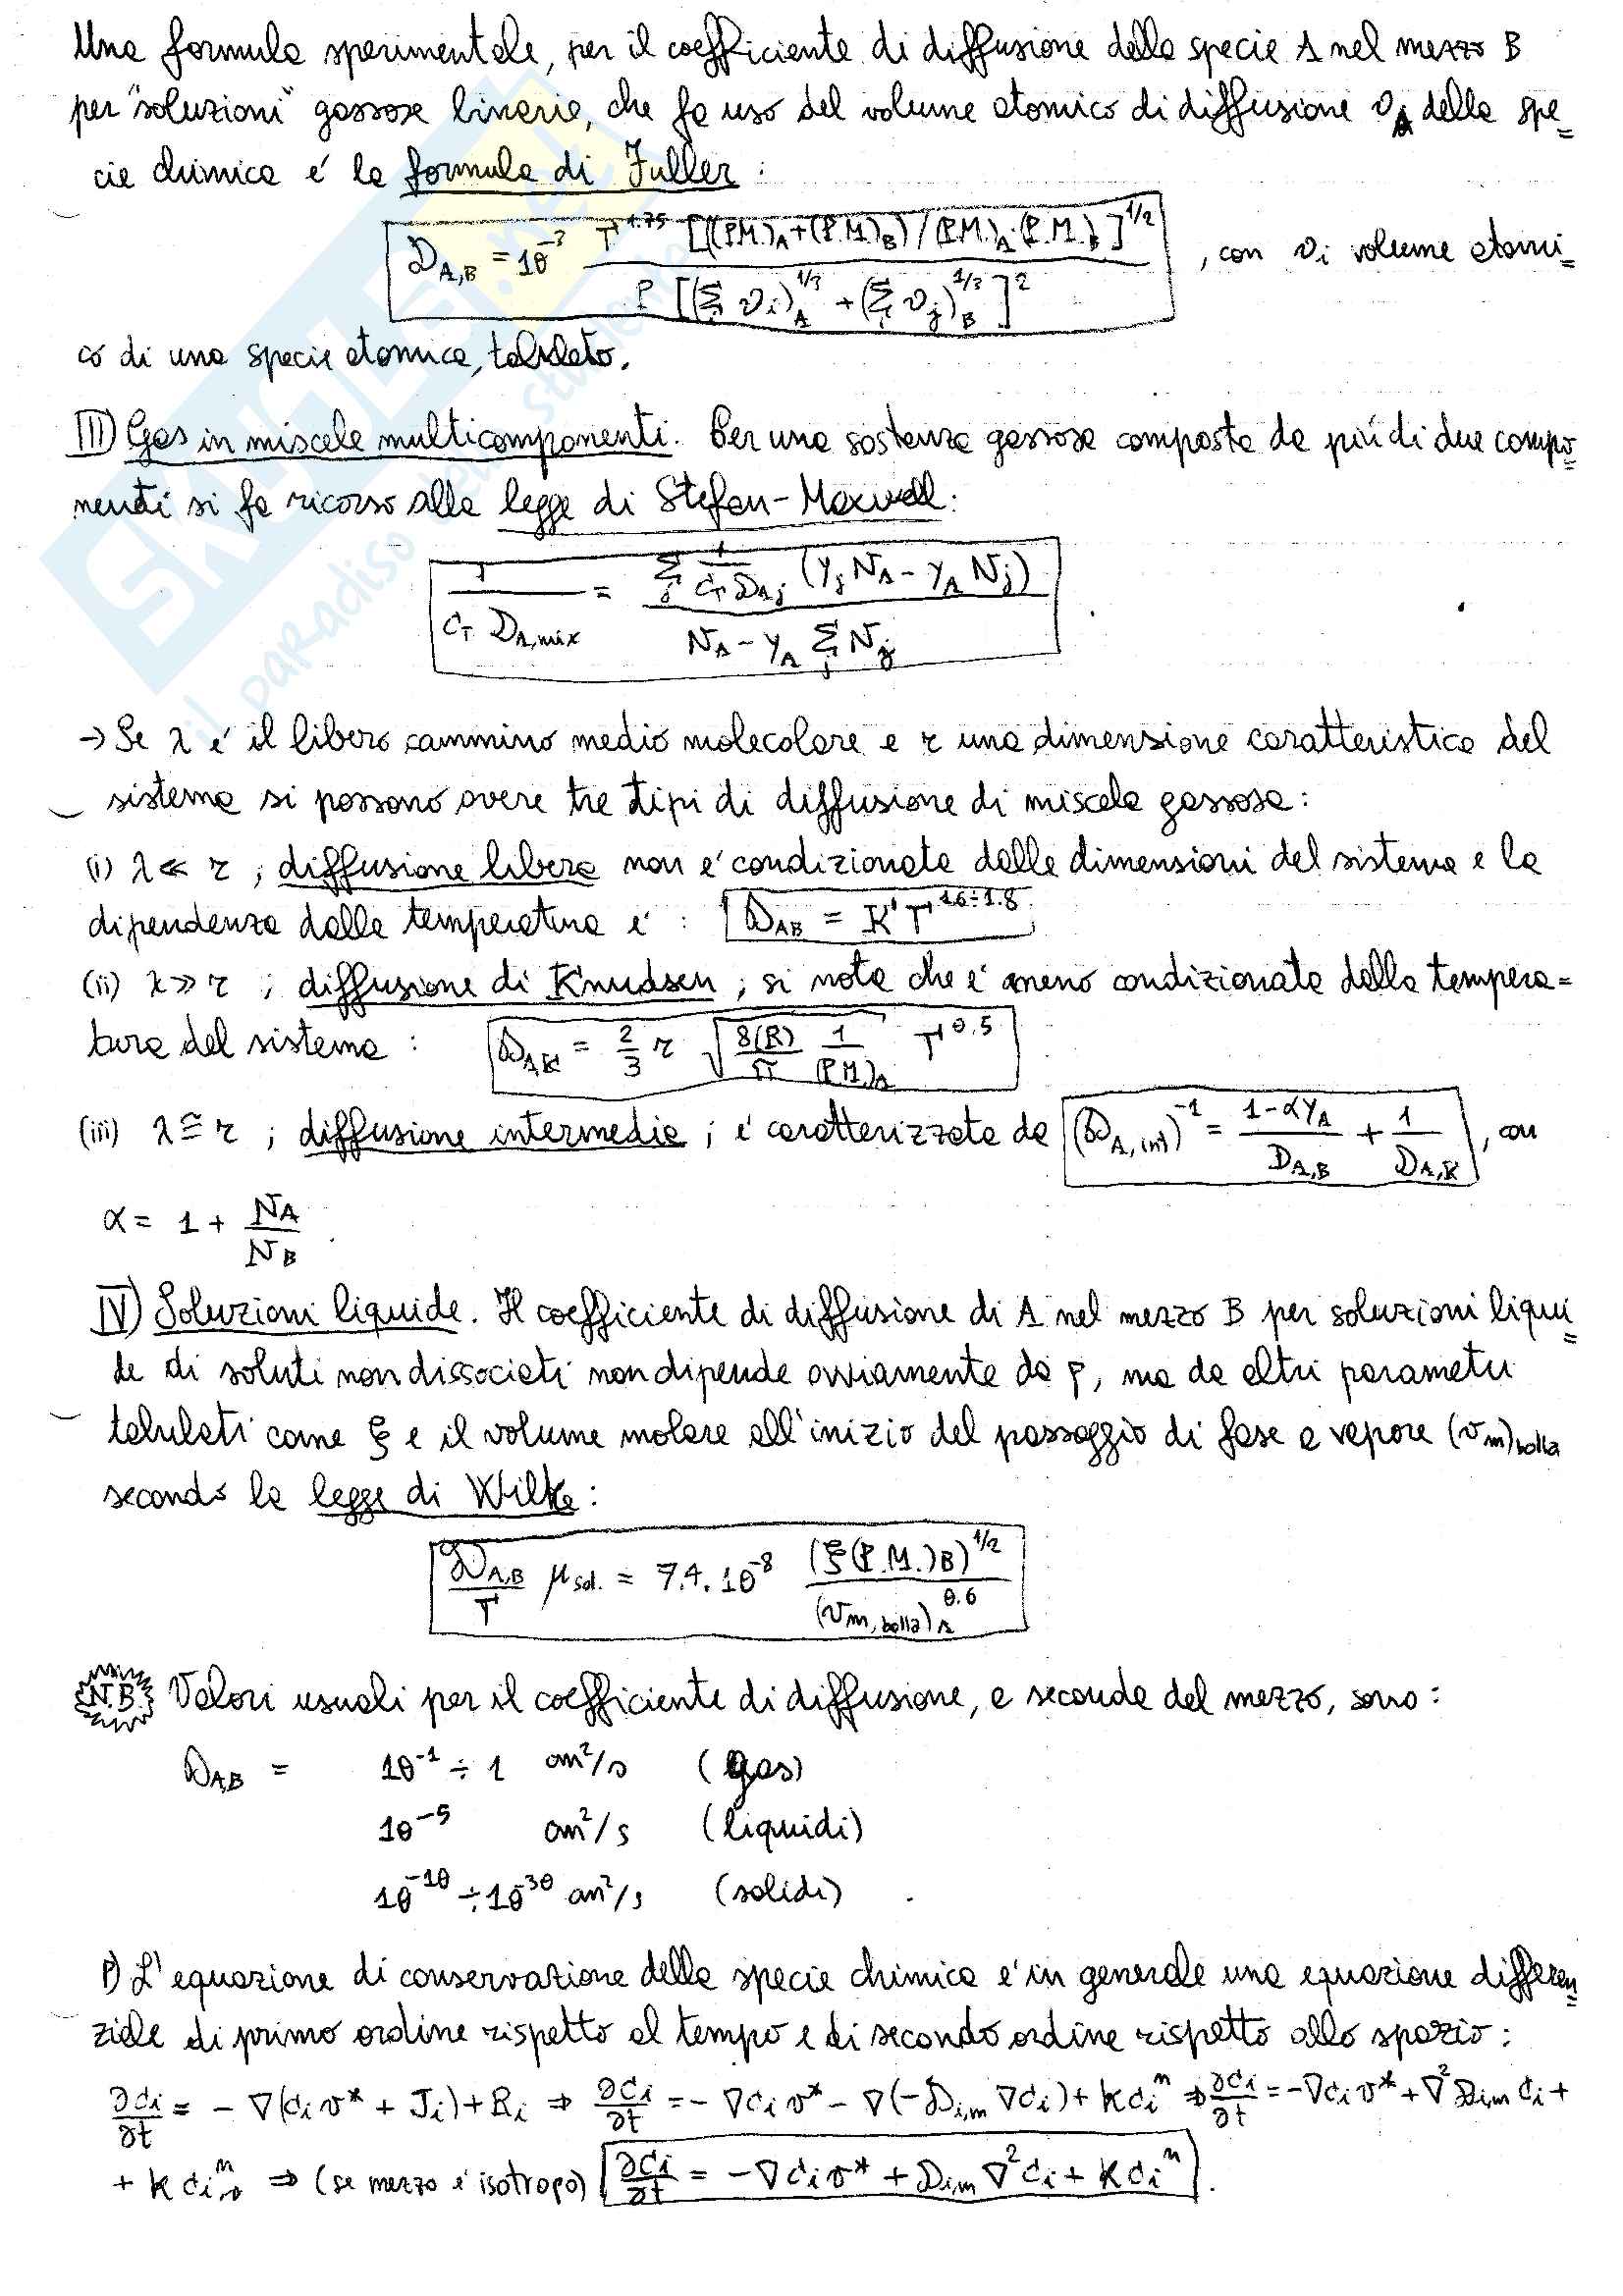 Una formula sperimentale, per il coefficiente di diffusione della specie A nel mezzo B
per "soluzioni" gassose binarie, che fa uso del volume atomico di diffusione v_A della spe=
cie chimica é la formula di Fuller :
D_A,B = 10^-3 T^1.75 [((P.M.)_A+(P.M.)_B)/(P.M.)_A·(P.M.)_B]^1/2 / P [(Σ_i v_i)_A^1/3 + (Σ_i v_j)_B^1/3]^2 , con v_i volume atomi=
co di una specie atomica, tabulato.
III) Gas in miscele multicomponenti. Per una sostanza gassosa composta da piú di due compo=
nenti si fa ricorso alla legge di Stefan-Maxwell:
1 / C_T D_A,mix = Σ_j 1/(C_T D_Aj) (y_j N_A - y_A N_j) / N_A - y_A Σ_j N_j
→ Se λ é il libero cammino medio molecolare e r una dimensione caratteristica del
sistema si possono avere tre tipi di diffusione di miscela gassosa:
(i) λ ≪ r ; diffusione libera non é condizionata dalle dimensioni del sistema e la
dipendenza dalla temperatura é : D_AB = K' T^1.6÷1.8
(ii) λ ≫ r ; diffusione di Knudsen ; si nota che é meno condizionata dalla tempera=
tura del sistema : D_AK = 2/3 r √(8(R)/π 1/(P.M.)_A) T^0.5
(iii) λ ≅ r ; diffusione intermedia ; é caratterizzata da (D_A,int)^-1 = (1-αy_A)/D_A,B + 1/D_A,K , con
α = 1 + N_A/N_B .
IV) Soluzioni liquide. Il coefficiente di diffusione di A nel mezzo B per soluzioni liqui=
de di soluti non dissociati non dipende ovviamente da P, ma da altri parametri
tabulati come ξ e il volume molare all'inizio del passaggio di fase a vapore (v_m)_bolla
secondo la legge di Wilke:
D_A,B/T μ_sol. = 7.4·10^-8 (ξ(P.M.)_B)^1/2 / (v_m,bolla)_A^0.6
N.B. Valori usuali per il coefficiente di diffusione, a seconda del mezzo, sono :
D_A,B = 10^-1 ÷ 1 cm²/s (gas)
10^-5 cm²/s (liquidi)
10^-10 ÷ 10^-30 cm²/s (solidi) .
P) L'equazione di conservazione della specie chimica é in generale una equazione differen=
ziale di primo ordine rispetto al tempo e di secondo ordine rispetto allo spazio :
∂c_i/∂t = - ∇(c_i v* + J_i) + R_i ⇒ ∂c_i/∂t = - ∇c_i v* - ∇(-D_i,m ∇c_i) + k c_i^n ⇒ ∂c_i/∂t = -∇c_i v* + ∇²D_i,m c_i +
+ k c_i^n ⇒ (se mezzo é isotropo) ∂c_i/∂t = -∇c_i v* + D_i,m ∇²c_i + k c_i^n .